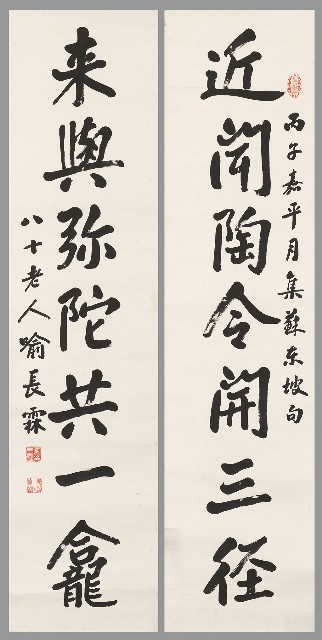 近聞陶令開三径
丙子嘉平月集蘇东坡句
来與弥陀共一龕
八十老人喻長霖